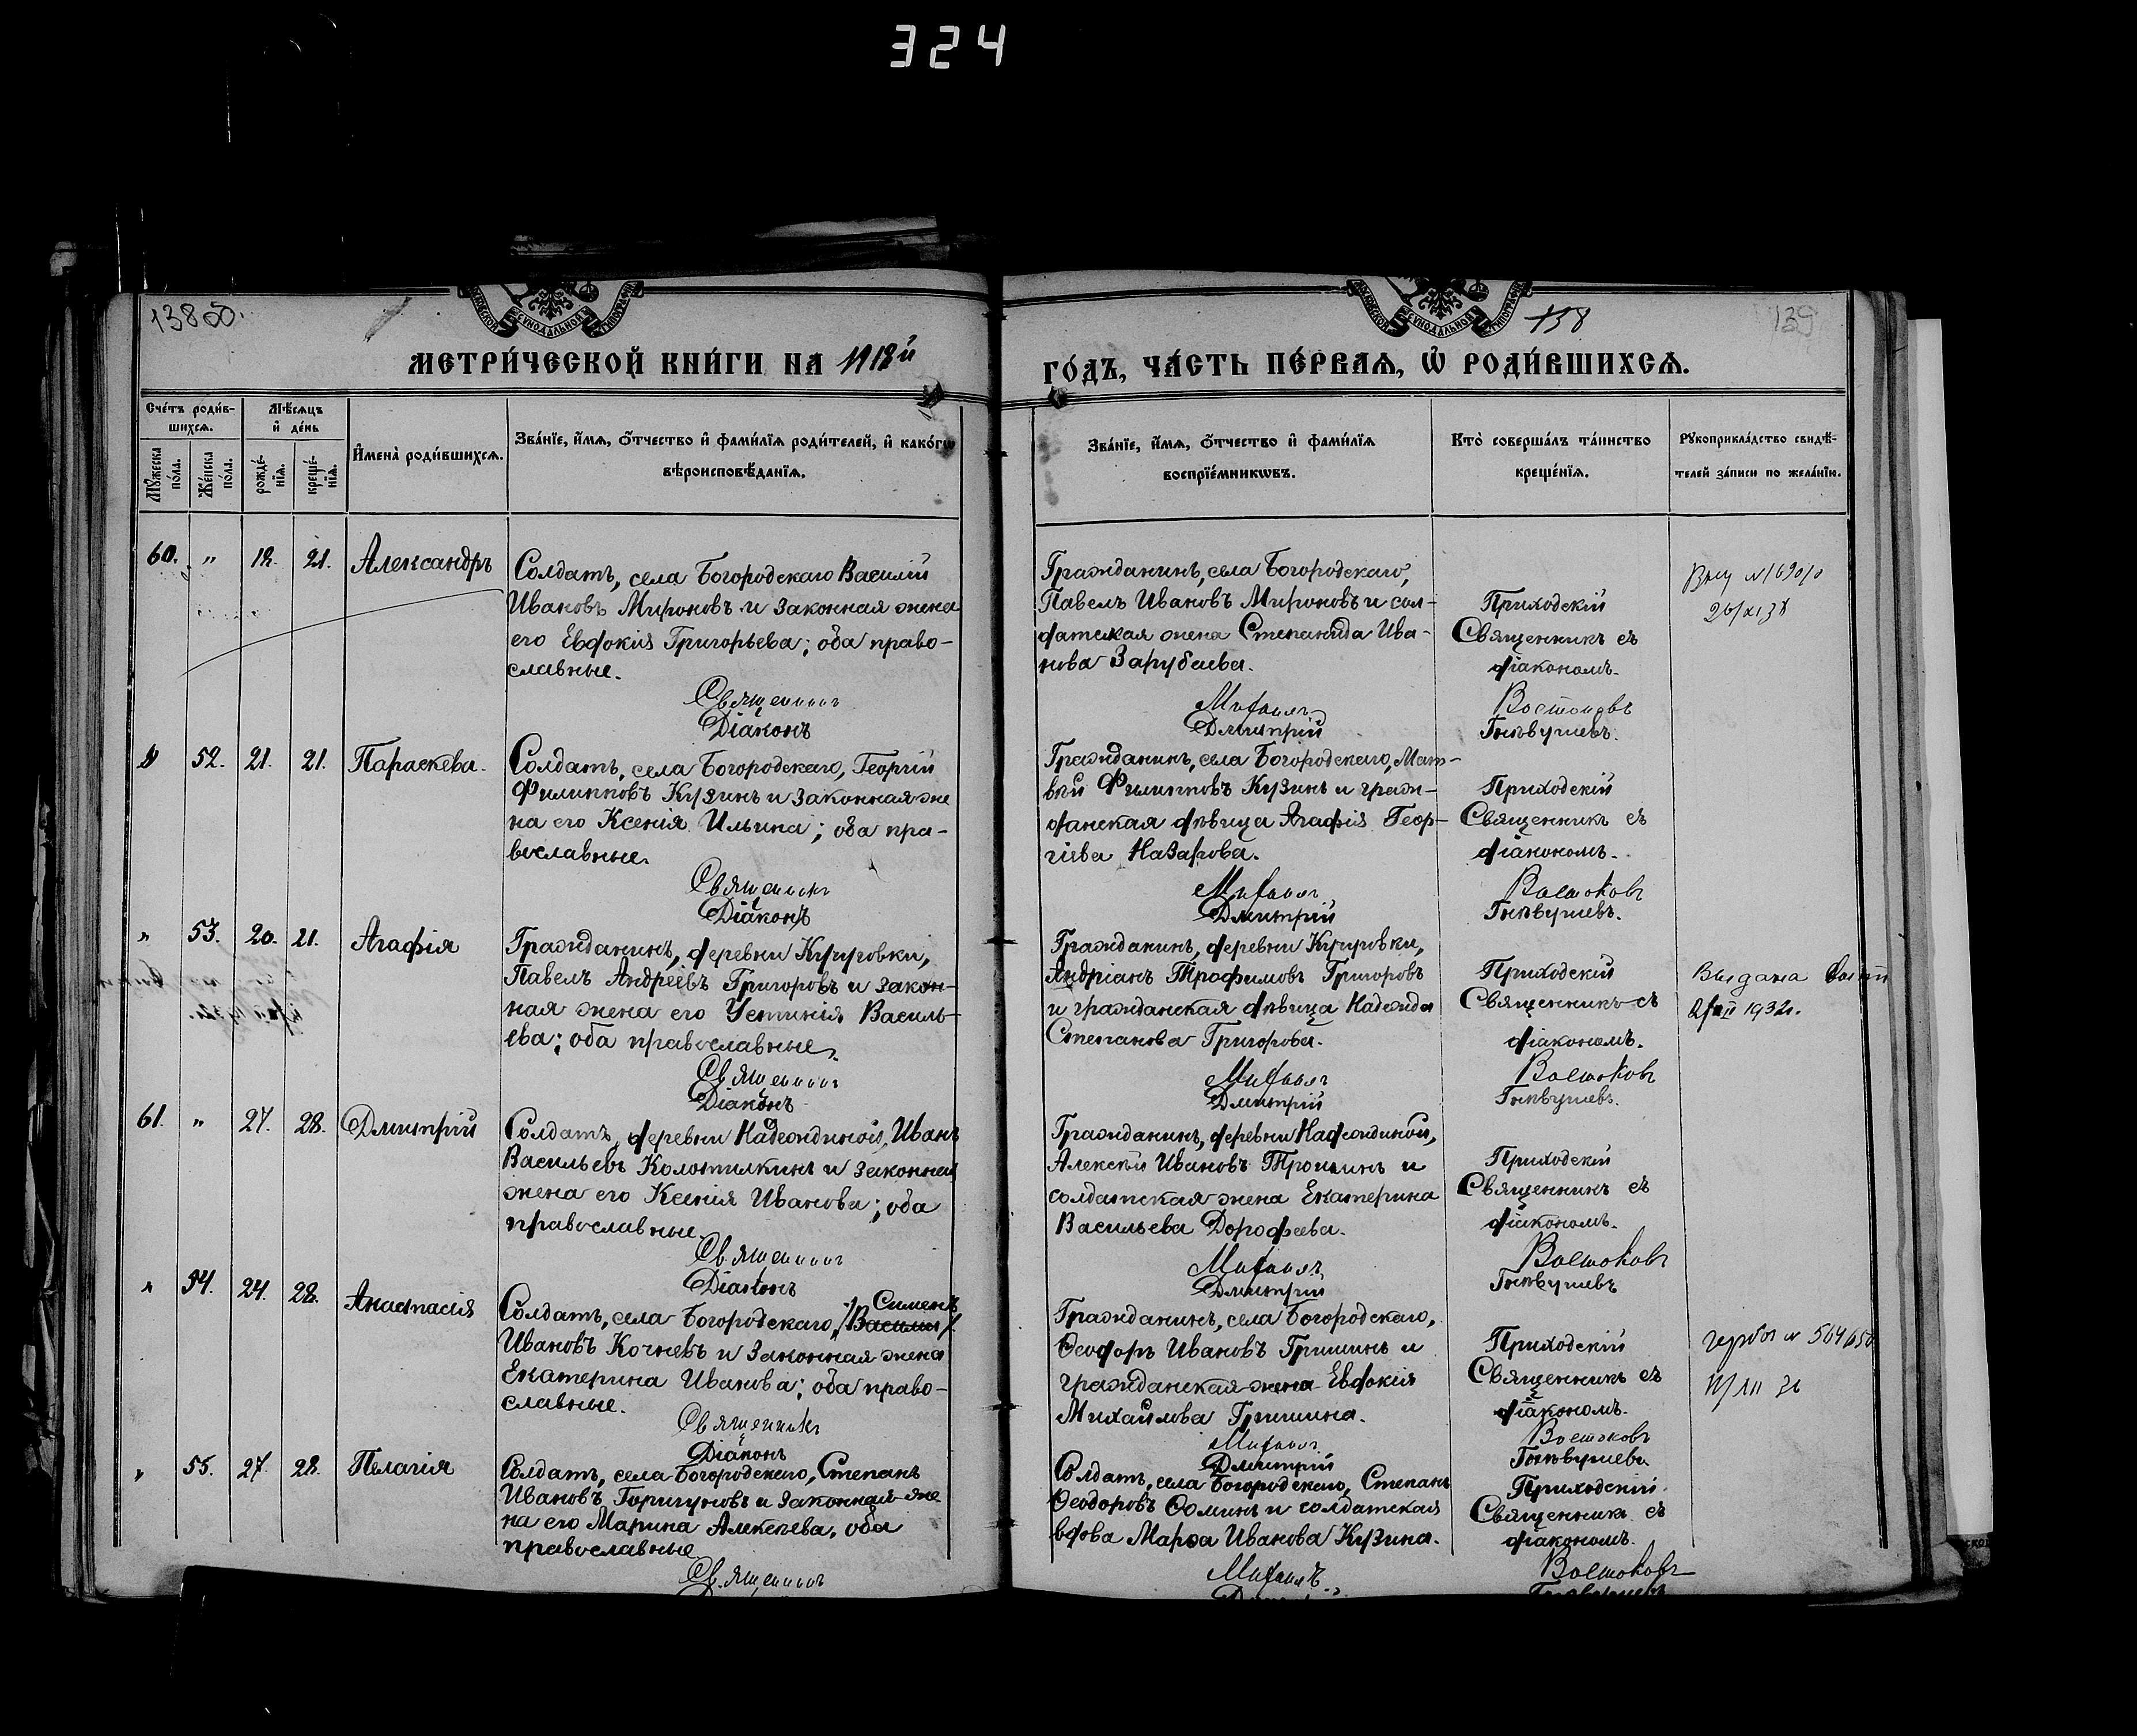 324
138об.
138
139
МЕТРИ́ЧЕСКОЙ КНИ́ГИ НА 1918й
ГО́ДЪ, ЧА́СТЬ ПЕ́РВАѦ, Ѿ РОДИ́ВШИХСѦ.
Сче́тъ роди́в-
шихсѧ.
Мѣ́сѧцъ
и҆ де́нь
Мꙋ́жеска по́ла.
Же́нска по́ла.
рожде́-
нїѧ.
креще́-
нїѧ.
И҆мена̀ роди́вшихсѧ.
Зва́нїе, и҆́мѧ, ѻ҆́тчество и҆ фами́лїѧ роди́телей, и҆ како́гѡ
вѣроисповѣ́данїѧ.
Зва́нїе, и҆́мѧ, ѻ҆́тчество и҆ фами́лїѧ
воспрїе́мникѡвъ.
Кто̀ соверша́лъ та́инство
креще́нїѧ.
Рꙋкоприкла́дство свидѣ́-
телей за́писи по жела́нїю.
60. „ 18. 21. Александръ
Солдатъ, села Богородскаго Василій
Ивановъ Мироновъ и законная жена
его Евдокія Григорьева; оба право-
славные.
Священникъ
Діаконъ
Гражданинъ, села Богородскаго,
Павелъ Ивановъ Мироновъ и сол-
датская жена Степанида Ива-
нова Зарубаева.
Михаилъ
Дмитрій
Приходскій
Священникъ съ
діакономъ.
Востоковъ
Гнѣвушевъ.
„ 52. 21. 21. Параскева.
Солдатъ, села Богородскаго, Георгій
Филипповъ Кузинъ и законная же
на его Ксенія Ильина; оба пра-
вославные.
Священникъ
Діаконъ
Гражданинъ, села Богородскаго, Мат-
вѣй Филипповъ Кузинъ и граж-
данская дѣвица Агафія Геор-
гіева Назарова.
Михаилъ
Дмитрій
Приходскій
Священникъ съ
діакономъ.
Востоковъ
Гнѣвушевъ.
„ 53. 20. 21. Агафія
Гражданинъ, деревни
Павелъ Андреевъ Григоровъ и закон-
ная жена его Устинія Василь-
ева; оба православные.
Священникъ
Діаконъ
Гражданинъ, деревни
Андріанъ Трофимовъ Григоровъ
и гражданская дѣвица Надежда
Степанова Григорова.
Михаилъ
Дмитрій
Приходскій
Священникъ съ
діакономъ.
Востоковъ
Гнѣвушевъ.
Выдана
1932г.
61. „ 27. 28. Дмитрій
Солдатъ, деревни Надеждиной, Иванъ
Васильевъ Колотилкинъ и законная
жена его Ксенія Иванова; оба
православные.
Священникъ
Діаконъ
Гражданинъ, деревни Надеждиной,
Алексѣй Ивановъ Трошинъ и
солдатская жена Екатерина
Васильева Дорофеева.
Михаилъ
Дмитрій
Приходскій
Священникъ съ
діакономъ.
Востоковъ
Гнѣвушевъ
„ 54. 24. 28. Анастасія
Симеонъ
Солдатъ, села Богородскаго, /Василій/
Ивановъ Кочневъ и законная жена
Екатерина Иванова; оба право-
славные.
Священникъ
Діаконъ
Гражданинъ, села Богородскаго,
Ѳеодоръ Ивановъ Гришинъ и
гражданская жена Евдокія
Михайлова Гришина.
Михаилъ
Дмитрій
Приходскій
Священникъ съ
діакономъ.
Востоковъ
Гнѣвушевъ
„ 55. 27. 28. Пелагія
Солдатъ, села Богородскаго, Степанъ
Ивановъ Горшуновъ и законная же
на его Марина Алексѣева, оба
православные
Священникъ
Солдатъ, села Богородскаго, Степанъ
Ѳеодоровъ Ѳоминъ и солдатская
вдова Марѳа Иванова Кузина.
Михаилъ
Приходскій
Священникъ съ
діакономъ.
Востоковъ